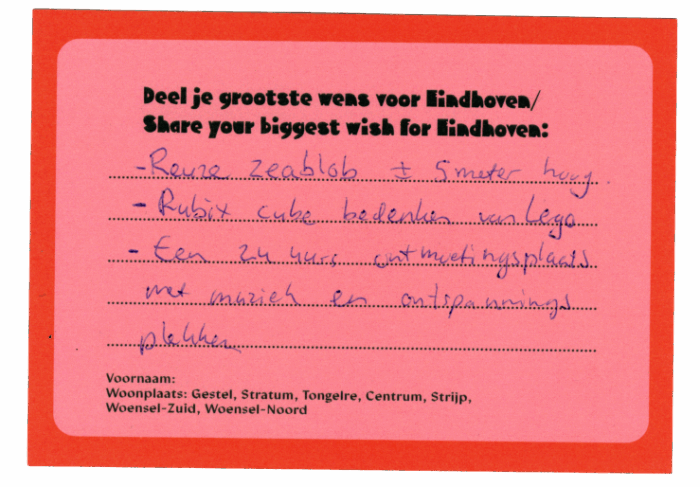 Deel je grootste wens voor Eindhoven/
Share your biggest wish for Eindhoven:
- Reuze zeablob ± 5 meter hoog
- Rubix cube bedenken van Lego
- Een 24 uurs ontmoetingsplaats
met muziek en ontspannings
plekken
Voornaam:
Woonplaats: Gestel, Stratum, Tongelre, Centrum, Strijp,
Woensel-Zuid, Woensel-Noord